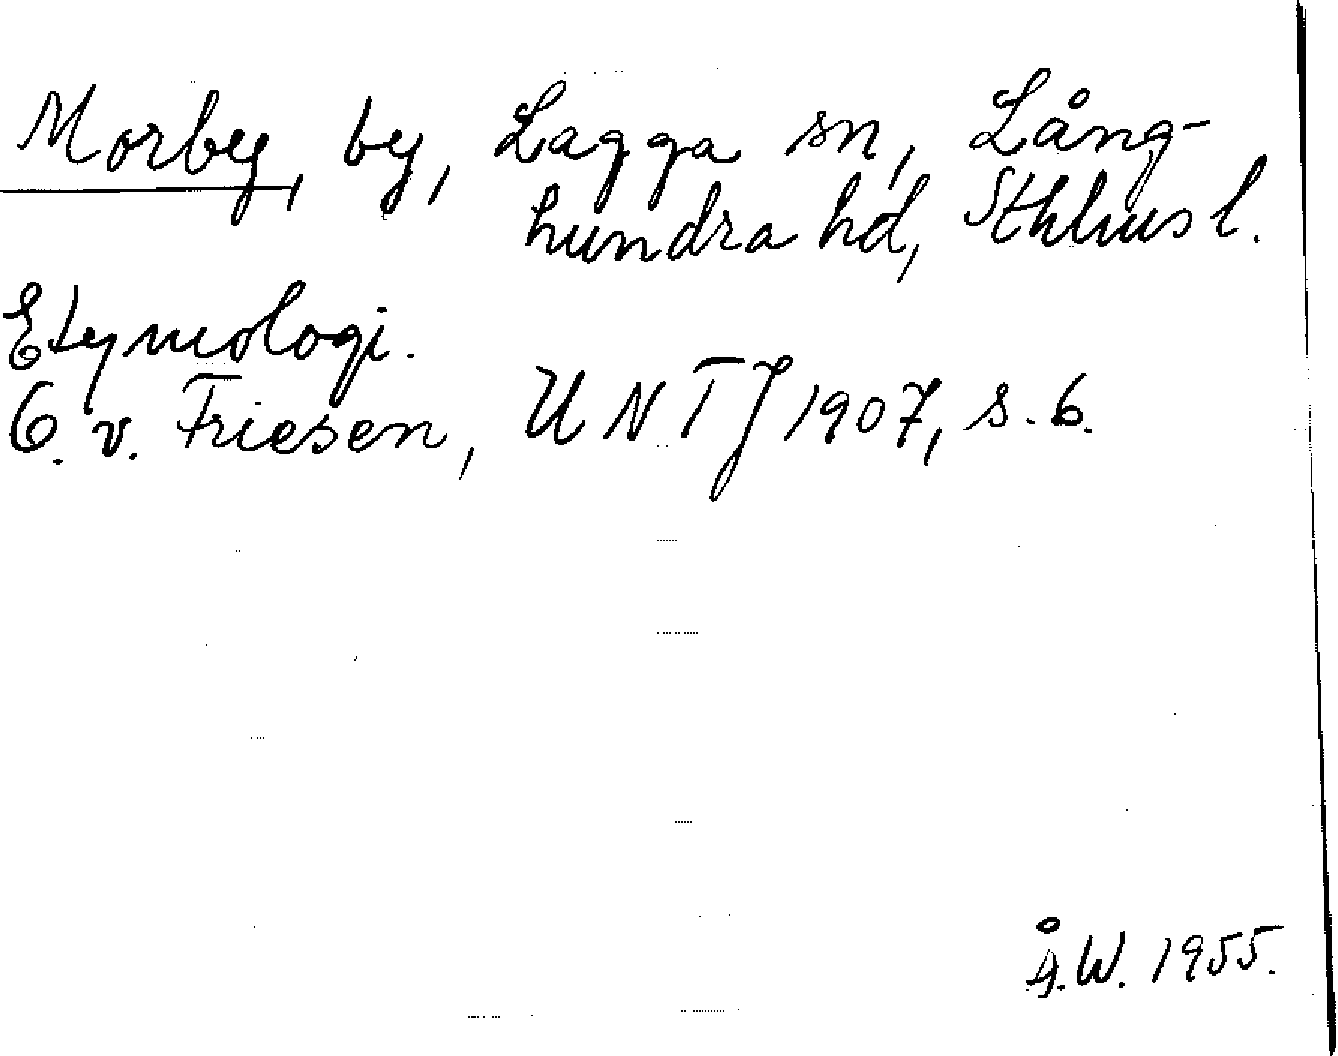 Morby, by, Lagga sn, Lång-
hundra hd, Sthlms l.
Etymologi.
O. v. Friesen, UNTJ 1907, s. 6.
Å.W. 1955.